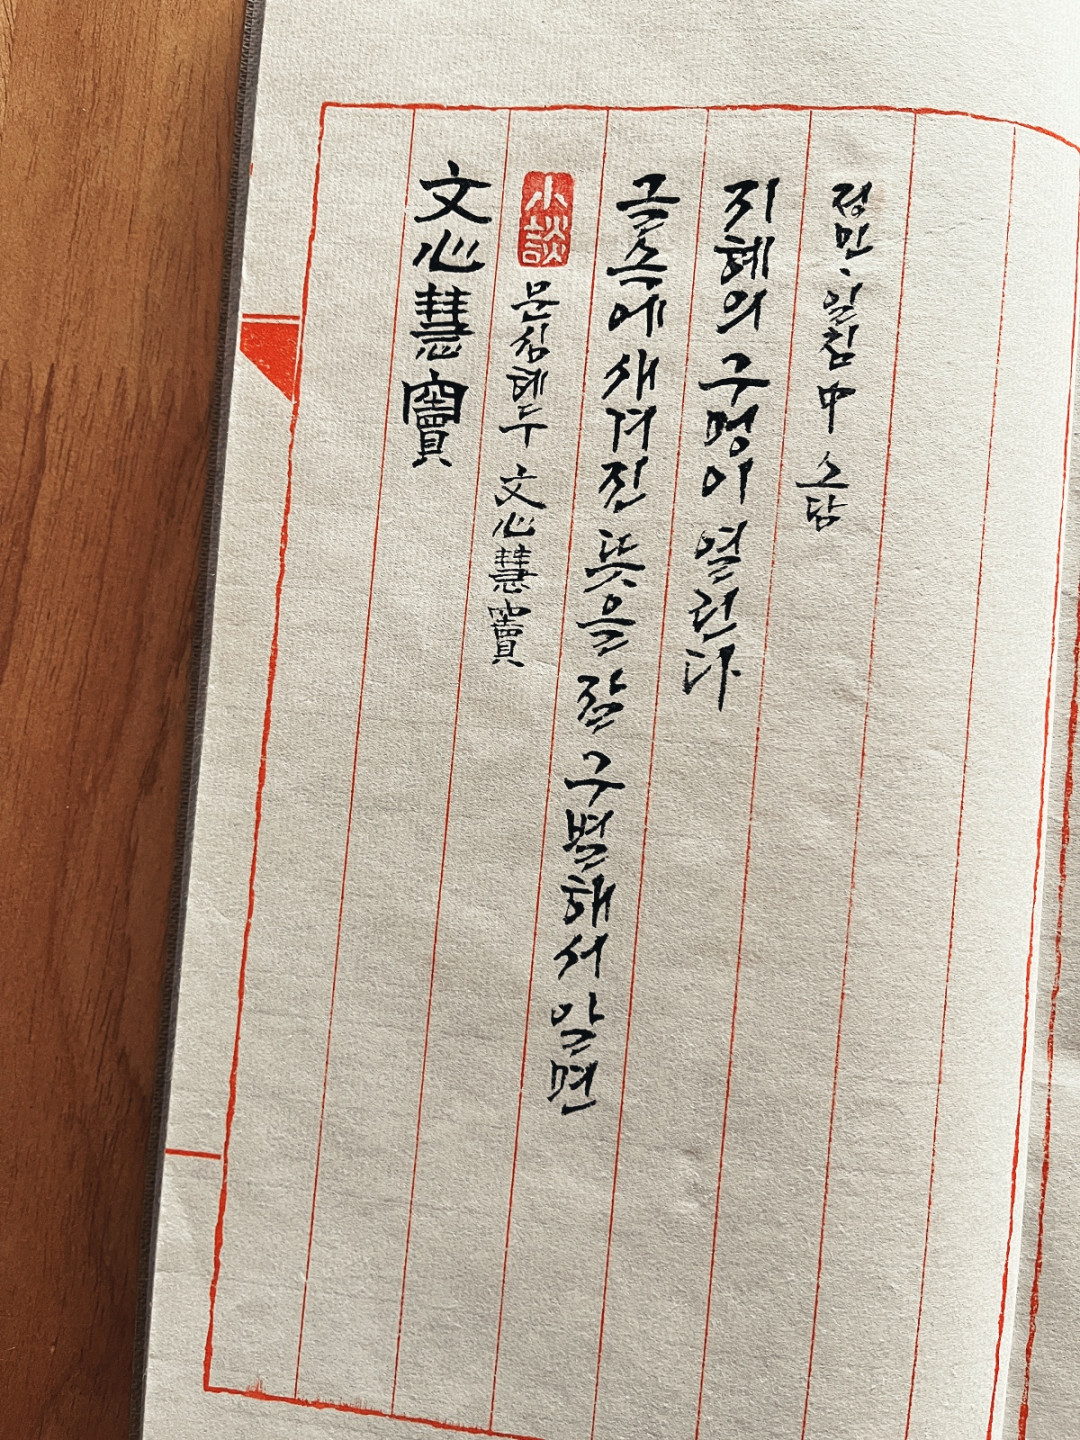 文心慧竇
小談
문심혜두 文心慧竇
글 속에 새겨진 뜻을 잘 구별해서 알면
지혜의 구멍이 열린다
정민, 일침 中 소담